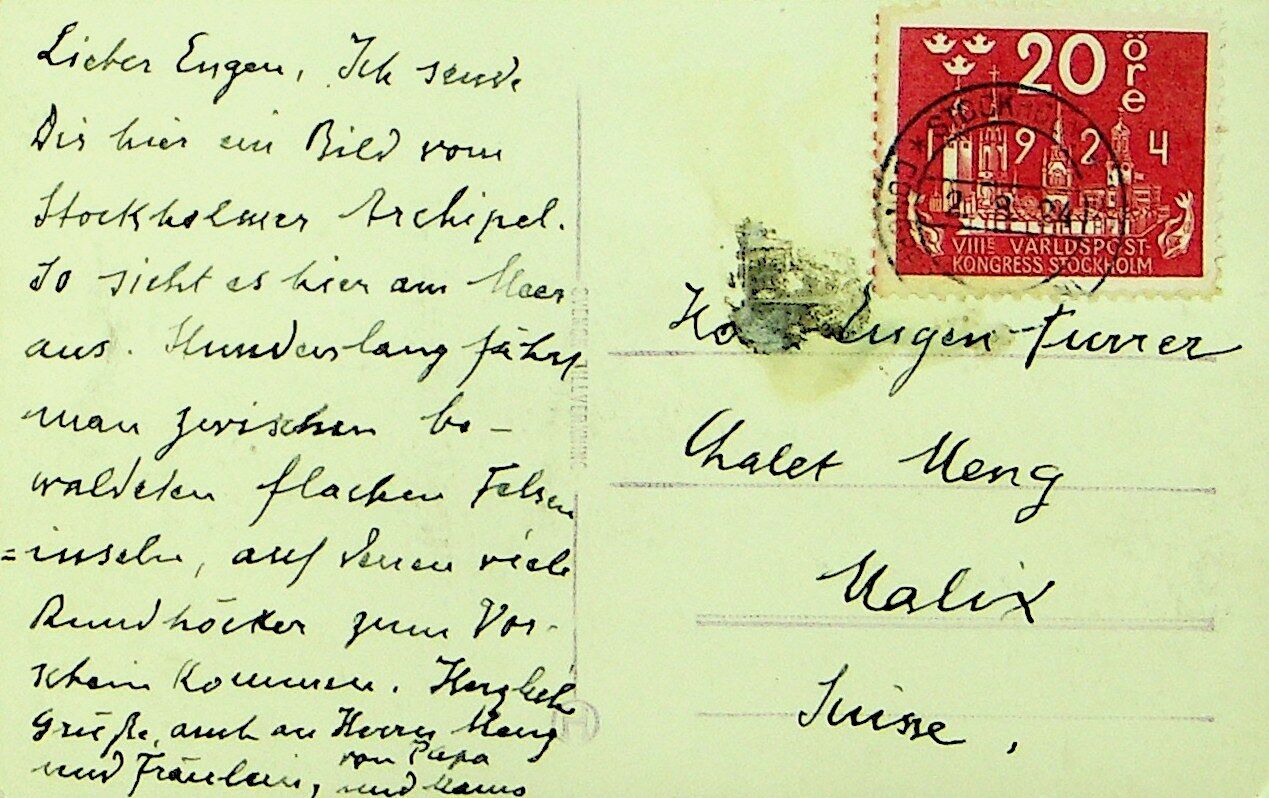 Lieber Eugen, Ich sende
Dir hier ein Bild vom
Stockholmer Archipel.
So sieht es hier am Meer
aus. Stundenlang fährt
man zwischen be-
waldeten flachen Felsen
=inseln, auf denen viele
Rundhöcker zum Vor-
schein kommen. Herzliche
Grüße, auch an Herrn Meng
und Fräulein, von Papa
und Mama
20 öre
1924
VIIIE VÄRLDSPOST-
KONGRESS STOCKHOLM
STOCKHOLM
2. 8. 24
Eugen Furrer
Chalet Meng
Malix
Suisse,